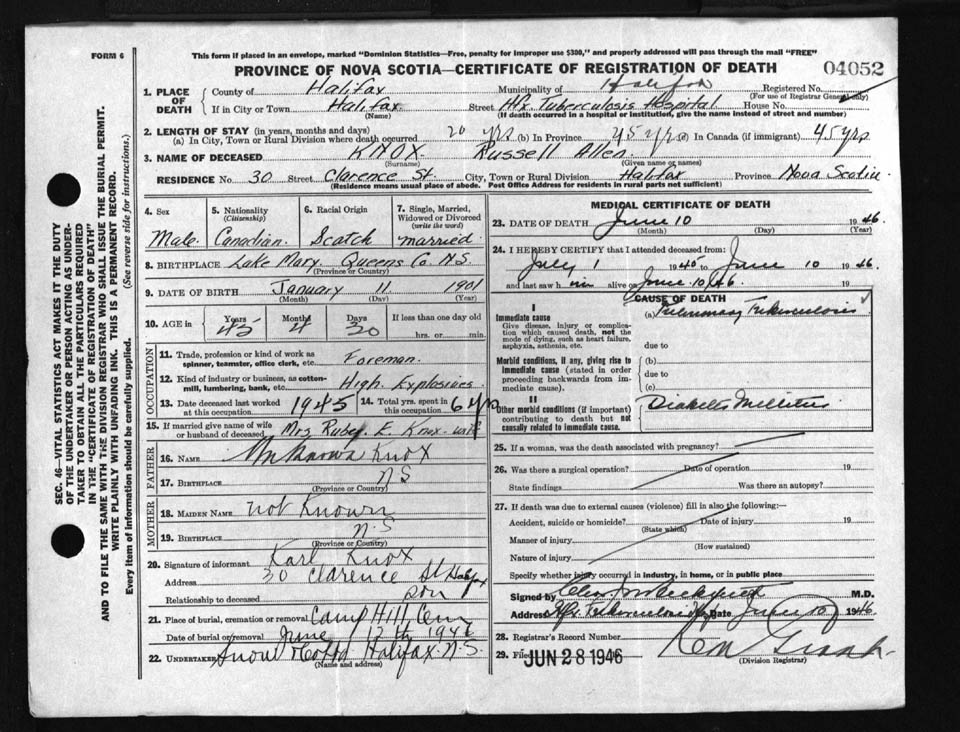 FORM 6
This form if placed in an envelope, marked "Dominion Statistics—Free, penalty for improper use $300," and properly addressed will pass through the mail "FREE"
PROVINCE OF NOVA SCOTIA—CERTIFICATE OF REGISTRATION OF DEATH 04052
1. PLACE OF DEATH
County of Halifax Municipality of Halifax Registered No.
(For use of Registrar General only)
If in City or Town Halifax Street Hfx Tuberculosis Hospital House No.
(Name) (If death occurred in a hospital or institution, give the name instead of street and number)
2. LENGTH OF STAY (in years, months and days)
(a) In City, Town or Rural Division where death occurred 20 yrs (b) In Province 45 yrs (c) In Canada (if immigrant) 45 yrs
3. NAME OF DECEASED KNOX Russell Allen
(Surname) (Given name or names)
RESIDENCE No. 30 Street Clarence St. City, Town or Rural Division Halifax Province Nova Scotia
(Residence means usual place of abode. Post Office Address for residents in rural parts not sufficient)
4. Sex Male.
5. Nationality (Citizenship) Canadian.
6. Racial Origin Scotch
7. Single, Married, Widowed or Divorced (write the word) married
8. BIRTHPLACE Lake Mary. Queens Co. N.S.
(Province or Country)
9. DATE OF BIRTH January 11 1901
(Month) (Day) (Year)
10. AGE in Years 45 Months 4 Days 30 If less than one day old
hrs. or min.
OCCUPATION
11. Trade, profession or kind of work as spinner, teamster, office clerk, etc. Foreman.
12. Kind of industry or business, as cotton-mill, lumbering, bank, etc. High Explosives
13. Date deceased last worked at this occupation 1945 14. Total yrs. spent in this occupation 6 yrs
15. If married give name of wife or husband of deceased Mrs Ruby. E. Knox - wife
FATHER
16. NAME Unknown Knox
17. BIRTHPLACE N S
(Province or Country)
MOTHER
18. MAIDEN NAME not Known
19. BIRTHPLACE N.S
(Province or Country)
20. Signature of informant Karl Knox
Address 30 Clarence St Halifax
Relationship to deceased son
21. Place of burial, cremation or removal Camp Hill, Cem
Date of burial or removal June 12th 1946
22. UNDERTAKER Snow & Co Ltd Halifax. N.S.
(Name and address)
MEDICAL CERTIFICATE OF DEATH
23. DATE OF DEATH June 10 1946
(Month) (Day) (Year)
24. I HEREBY CERTIFY that I attended deceased from:
July 1 1945 to June 10 1946.
and last saw him alive on June 10/46.
CAUSE OF DEATH
I
Immediate cause (a) Pulmonary Tuberculosis
Give disease, injury or complication which caused death, not the mode of dying, such as heart failure, asphyxia, asthenia, etc.
due to
Morbid conditions, if any, giving rise to immediate cause (stated in order proceeding backwards from immediate cause).
(b)
due to
(c)
II
Other morbid conditions (if important) contributing to death but not causally related to immediate cause. Diabetes Mellitus
25. If a woman, was the death associated with pregnancy?
26. Was there a surgical operation? Date of operation 19
State findings Was there an autopsy?
27. If death was due to external causes (violence) fill in also the following:—
Accident, suicide or homicide? Date of injury 19
(State which)
Manner of injury
(How sustained)
Nature of injury
Specify whether injury occurred in industry, in home, or in public place
Signed by M.D.
Address Hfx. Tuberculosis Hosp Date June 10 1946
28. Registrar's Record Number
29. Filed JUN 28 1946
(Division Registrar)
SEC. 46—VITAL STATISTICS ACT MAKES IT THE DUTY
OF THE UNDERTAKER OR PERSON ACTING AS UNDER-
TAKER TO OBTAIN ALL THE PARTICULARS REQUIRED
IN THE "CERTIFICATE OF REGISTRATION OF DEATH"
AND TO FILE THE SAME WITH THE DIVISION REGISTRAR WHO SHALL ISSUE THE BURIAL PERMIT.
WRITE PLAINLY WITH UNFADING INK. THIS IS A PERMANENT RECORD.
Every item of information should be carefully supplied. (See reverse side for instructions.)